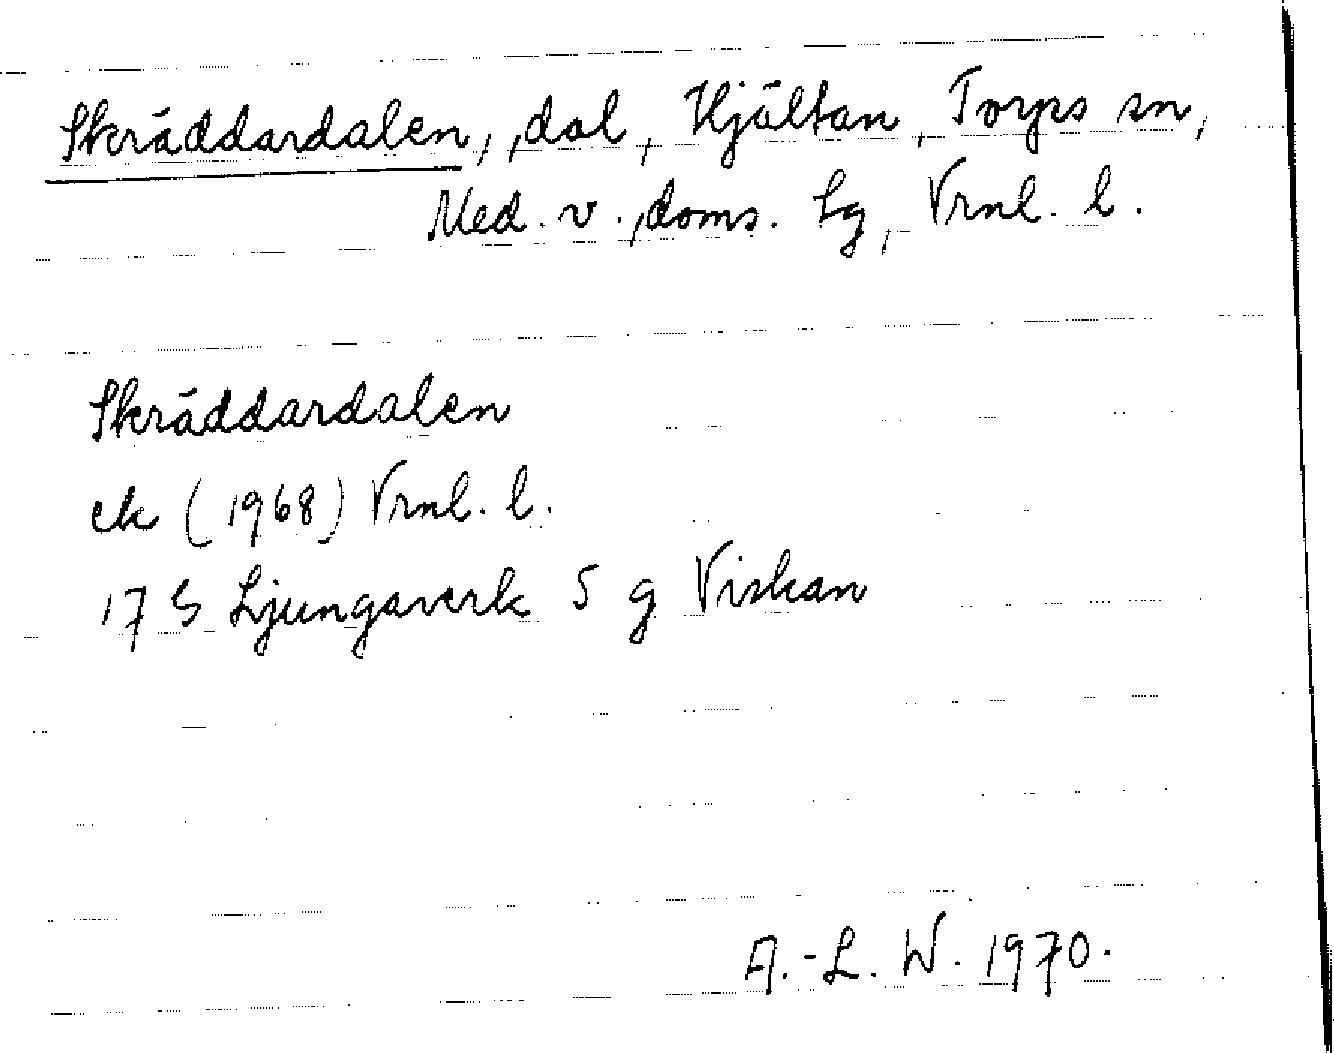 Skräddardalen, dal, Hjältan, Torps sn,
Med. v. doms. lg, Vrnl. l.
Skräddardalen
ek (1968) Vrnl. l.
17 G Ljungaverk 5 g Viskan
A.-L. W. 1970.